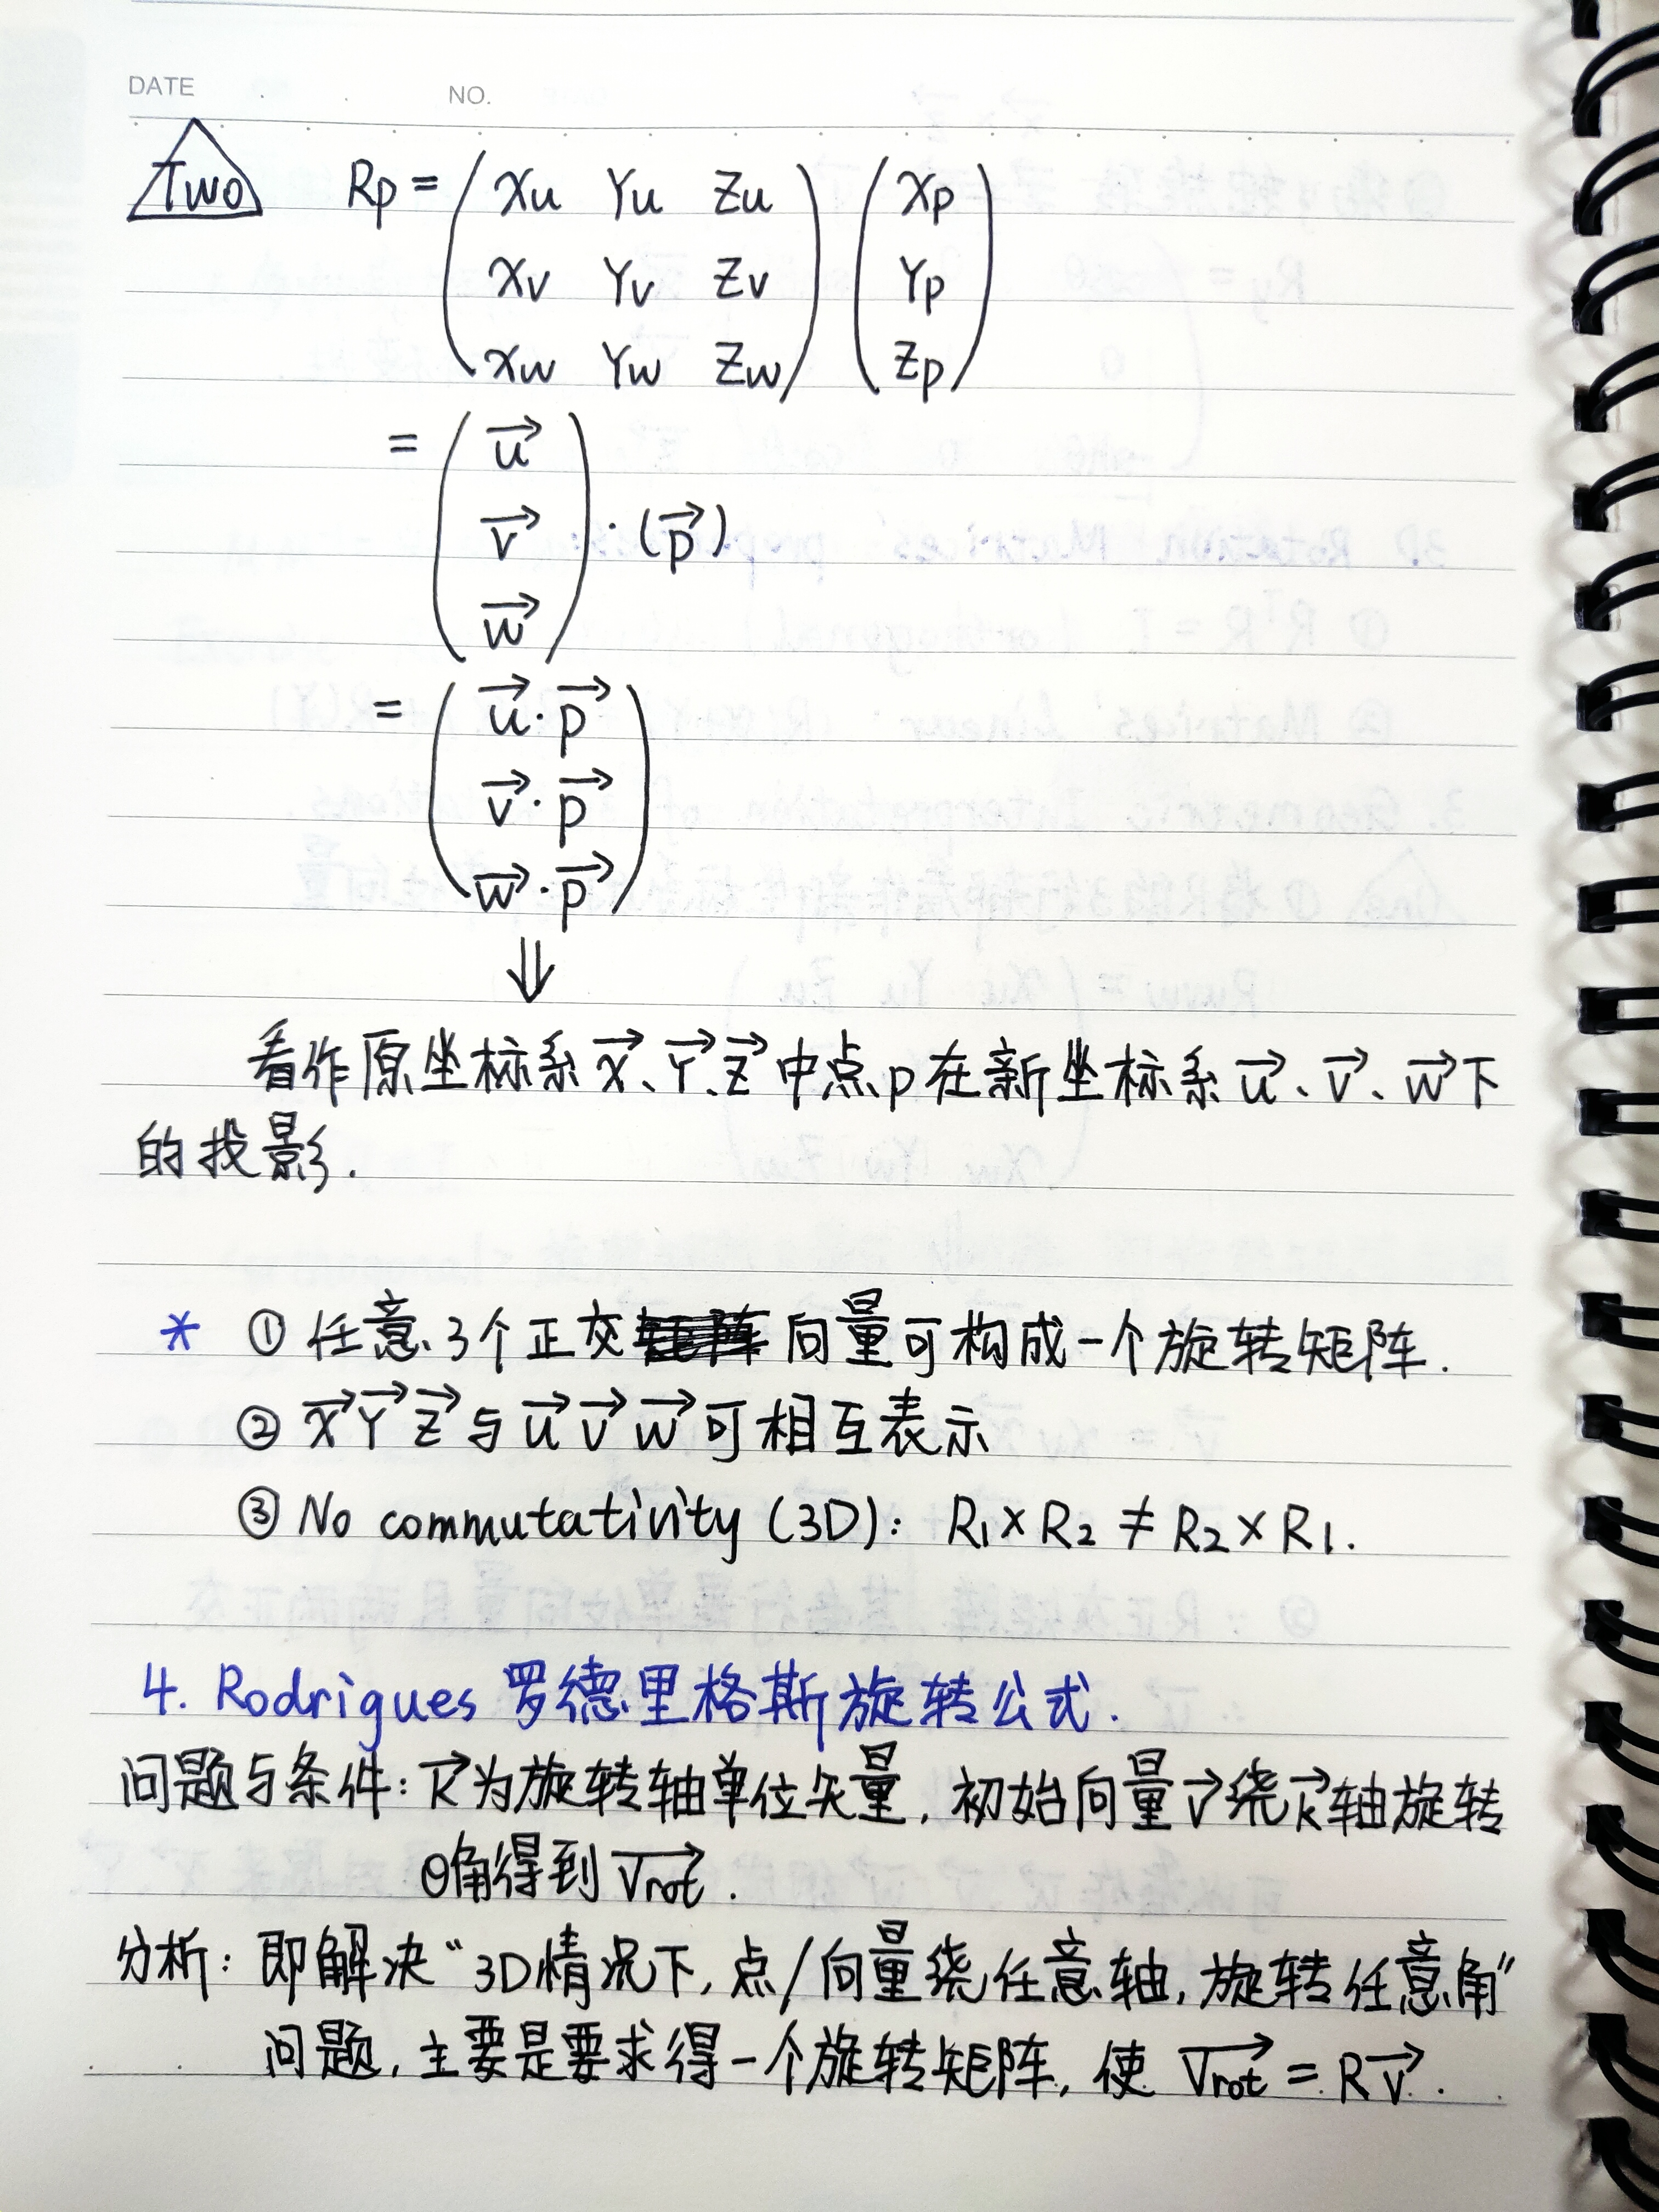 DATE . . NO.
Two Rp = ( Xu Yu Zu ) ( Xp )
( Xv Yv Zv ) ( Yp )
( Xw Yw Zw ) ( Zp )
= ( u⃗ )
( v⃗ ) · (p⃗)
( w⃗ )
= ( u⃗·p⃗ )
( v⃗·p⃗ )
( w⃗·p⃗ )
⇓
看作原坐标系 X⃗、Y⃗、Z⃗ 中点p在新坐标系 u⃗、v⃗、w⃗下
的投影.
* ① 任意3个正交向量可构成一个旋转矩阵.
② X⃗ Y⃗ Z⃗ 与 u⃗ v⃗ w⃗ 可相互表示
③ No commutativity (3D): R₁×R₂ ≠ R₂×R₁.
4. Rodrigues 罗德里格斯旋转公式.
问题与条件: k⃗为旋转轴单位矢量, 初始向量v⃗绕k⃗轴旋转
θ角得到 v⃗rot.
分析: 即解决“3D情况下, 点/向量绕任意轴, 旋转任意角”
问题, 主要是要求得一个旋转矩阵, 使 v⃗rot = Rv⃗.